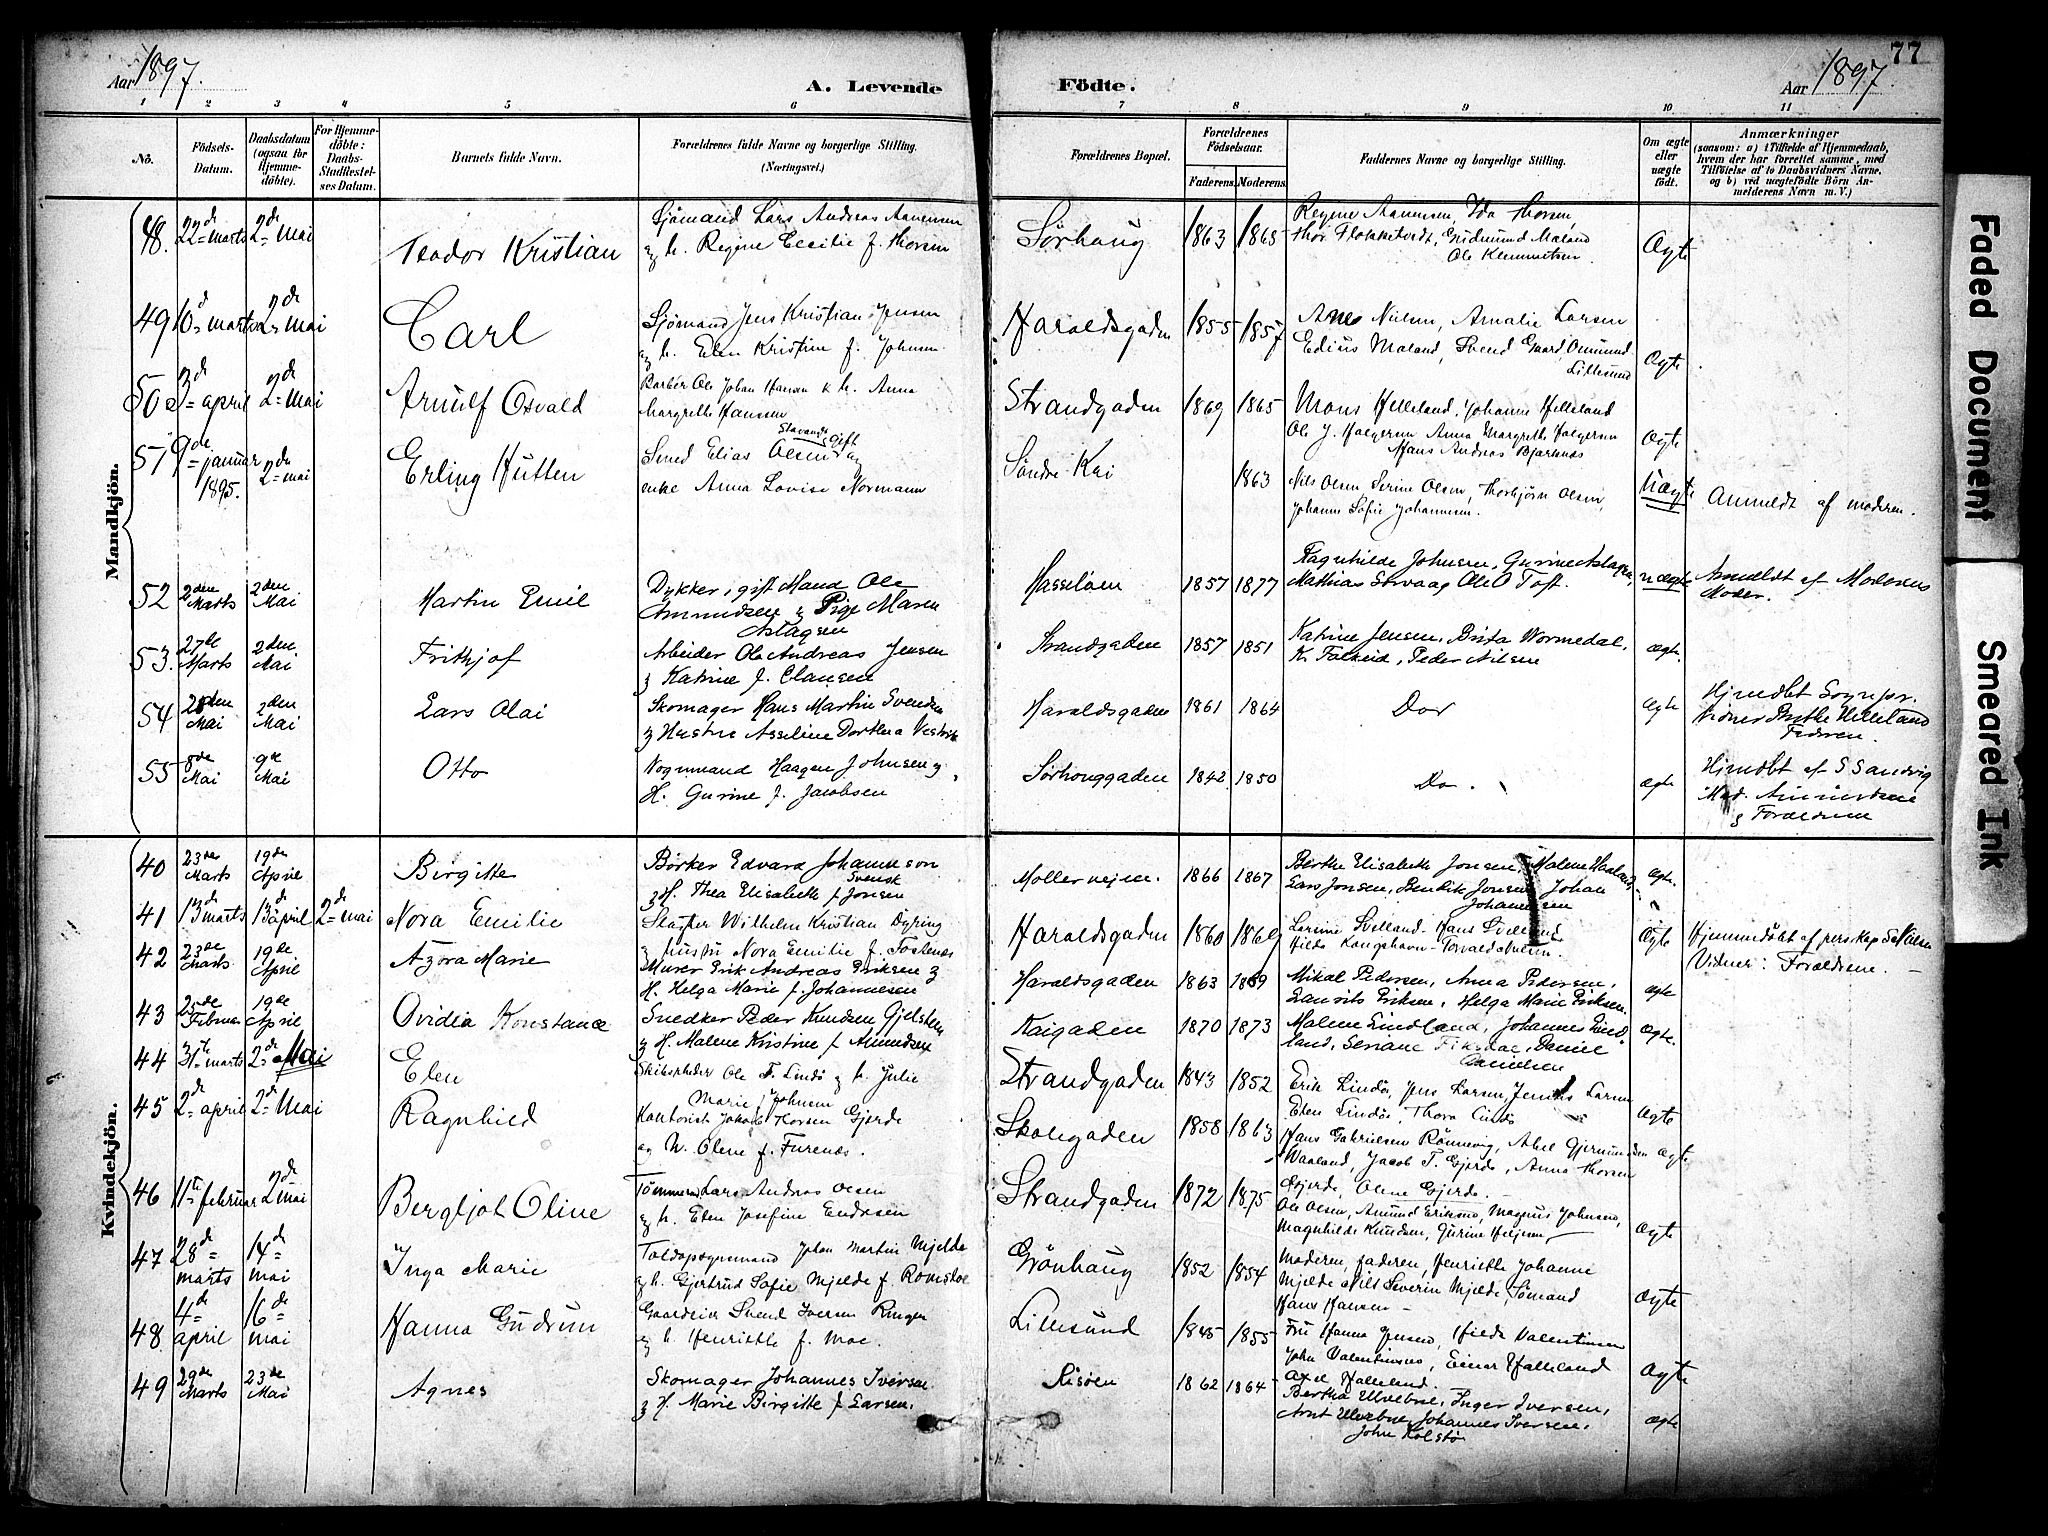 77
Aar 1897.
A. Levende Födte.
Aar 1897
1 2 3 4 5 6 7 8 9 10 11
No.
Födsels-Datum.
Daabsdatum (ogsaa for Hjemme-döbte).
For Hjemme-döbte: Daabs-Stadfæstel-ses Datum.
Barnets fulde Navn.
Forældrenes fulde Navne og borgerlige Stilling. (Næringsvei.)
Forældrenes Bopæl.
Forældrenes Födselsaar.
Faderens. Moderens.
Faddernes Navne og borgerlige Stilling.
Om ægte eller uægte födt.
Anmærkninger (saasom: a) i Tilfælde af Hjemmedaab, hvem der har forrettet samme, med Tilföielse af to Daabsvidners Navne, og b) ved uægtefödte Börn An-melderens Navn m. V.)
Mandkjön.
48. 22de marts 2de mai Teodor Kristian
Sjömand Lars Andreas Aanensen
og h. Regine Cecilie f. Thorsen
Sörhaug 1863 1865
Regine Aanensen, Ida Thorsen,
Gudmund Maland
Ægte
49 10de marts 2de mai Carl
Sjömand Jens Kristian Jensen
og h. Elen Kristine f. Johnsen
Haraldsgaden 1855 1857
Nielsen, Amalie Larsen
Edius Maland, Svend Gaard, Osmund
Lillesund
Ægte
50 3de april 2de mai Arnulf Osvald
Barbér Ole Johan Hansen & h. Anna
Margrethe Hansen
Strandgaden 1869 1865
Mons Helleland, Johanne Helleland
Ole J. Halgersen Anna Margrethe Halgersen
Hans Andreas Bjarknes
Ægte
51 9de januar 1895. 2de mai Erling Hütten
Smed Elias Olsen gift og
enke Anna Lovise Normann
Söndre Kai 1863
Nils Olsen Serine Olsen, Thorbjörn Olsen,
Johanne Sofie Johannesen.
Uægte
Anmeldt af moderen.
52 2den Marts 2den Mai Martin Emil
Dykker, gift Mand Ole
Ammundsen & Pige Maren
Aslagsen
Hasseløen 1857 1877
Ragnhilde Johnsen, Gurine Aslagsen,
Mathias Sørvaag Ole O Toft.
uægte
Anmeldt af Moderens
Moder.
53. 27de Marts 2den Mai Frithjof
Arbeider Ole Andreas Jensen
& Katrine f. Clausen
Strandgaden 1857 1851
Katrine Jensen, Brita Wormedal,
K. Falkeid, Peder Nilsen
ægte.
54 28den Mai 2den Mai Lars Olai
Skomager Hans Martin Svendsen
& Hustru Asseline Dorthea
Haraldsgaden 1861 1864
Døv
ægte
Hjmdøbt Sognepr.
Vidner Helleland
Faderen.
55 8de Mai 9de Mai Otto
Vognmand Haagen Johnsen &
H. Gurine f. Jacobsen
Sørhauggaden 1842 1850
Do.
ægte
Hjmdøbt af S Sandvig
Mad. Ammundsen
& Forældrene
Kvindekjön.
40 23de Marts 19de April Birgitte
Bødker Edvard Johanneson
Svensk
& H. Thea Elisabeth f. Jonsen
Møllerveien. 1866 1867
Berthe Elisabeth Jonsen, Malene Haaland,
Lars Jonsen, Hendrik Jonsen Johan
Johannesen
ægte.
41 13de marts 13de april 2de mai Nora Emilie
Slagter Wilhelm Kristian Dyring
& hustru Nora Emilie f. Toslenæs
Haraldsgaden 1860 1869
Larine Svelland Hans Svelland
Hilda Kongshavn Torvald Nilsen.
Ægte
Hjemmedöbt af Nilsen
Vidner: Forældrene.
42 23de Marts 19de April Azora Marie
Murer Erik Andreas Eriksen &
H. Helga Marie f. Johannesen
Haraldsgaden 1863 1869
Mikal Pedersen, Anna Pedersen,
Laurits Eriksen, Helga Marie Eriksen.
ægte
43 25de Februar 19de April Ovidia Konstance
Snedker Peder Knudsen Gjelsten
& H. Malene Kristine f. Amundsen
Kaigaden 1870 1873
Malene Lindland, Johannes Lind-
land, Seriane Daniel
Danielsen
ægte.
44 31te marts 2de Mai Elen
Skibsreder Ole T. Lindö & h. Julie
Marie f. Johnsen
Strandgaden 1843 1852
Erik Lindöe, Jens Larsen, Larsen
Elen Lindöe, Thora Lindö
Ægte
45 2de april 2de Mai Ragnhild
Jakob Thorsen Gjerde
og h. Oline f. Furenæs.
Skolegaden 1858 1863
Hans Gabrielsen Rönnevig, Abel Gjermundsen
Waaland, Jacob T. Gjerde, Anna Thorsen
Gjerde, Oline Gjerde.
Ægte
46 11te februar 2de mai Bergljot Oline
Tömmermand Lars Andreas Olsen
og h. Elen Josefine Endresen
Strandgaden 1872 1875
Ole Olsen, Amund Eriksen, Magnus Johnsen,
Magnhilde Knudsen, Gurine Helgesen
Ægte
47 28de marts 14de mai Inga Marie
Toldopsynsmand Johan Martin Mjelde
& h. Gjertrud Sofie Mjelde f. Romsloe
Grönhaug 1852 1854
Moderen, faderen, Henriette Johanne
Mjelde Nils Severin Mjelde, Sömand
Hans Hansen
Ægte
48 4de april 16de mai Hanna Gudrun
Gaardeier Svend Iversen Ringen
og h. Henriette f. Moe.
Lillesund 1845 1855
Fru Hanna Jensen, Hilda Valentinsen
John Valentinsen, Einar Helleland
Axel Helleland.
Ægte
49 29de Marts 23de Mai Agnes
Skomager Johannes Iversen
& H. Marie Birgitte f. Larsen.
Risøen 1862 1864
Bertha Ulvebne, Inger Iversen,
Arnt Ulvebne, Johannes Iversen,
John Kolstø
ægte
Faded Document
Smeared Ink